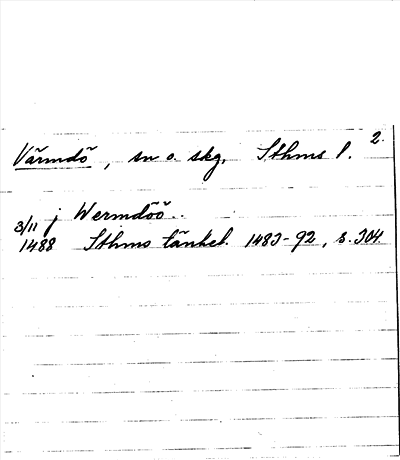 2.
Värmdö, sn o. skg, Sthms l.
3/11 j Wermdöö..
1488 Sthms tänkeb. 1483-92, s. 304.